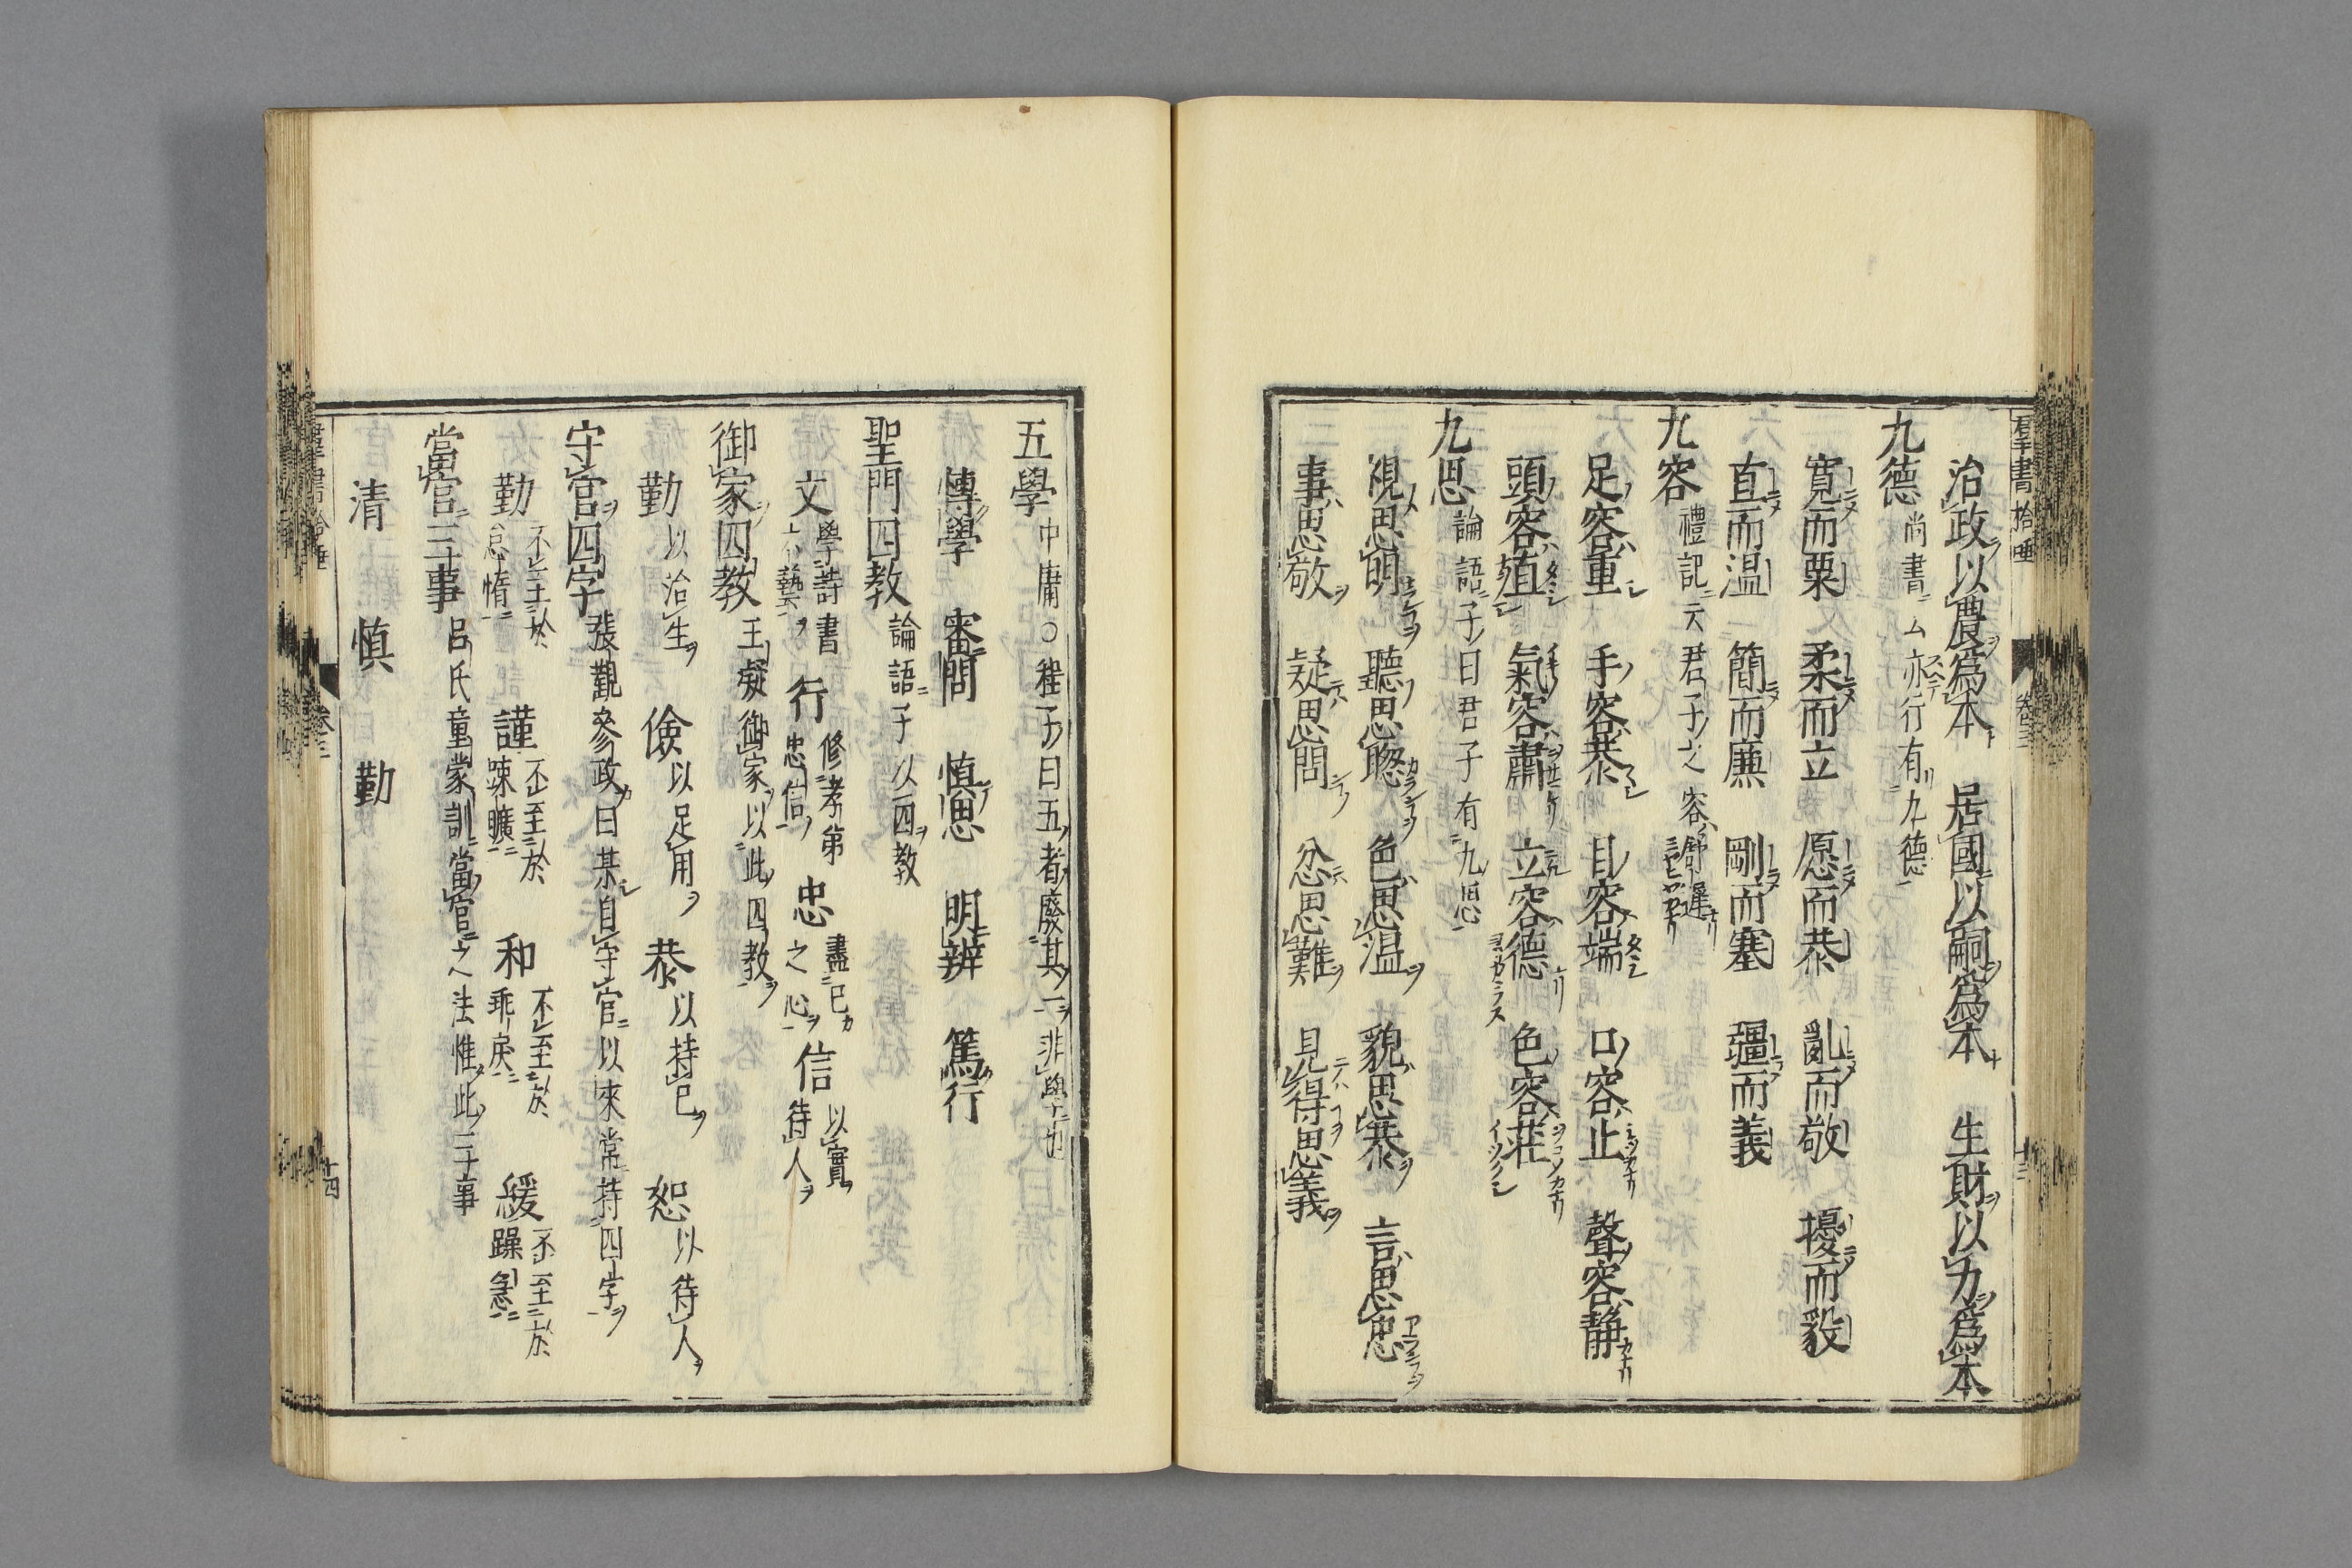 群書拾唾 卷三 十三
治政以農爲本 居國以嗣爲本 生財以力爲本
九德 尚書云亦行有九德
寛而栗 柔而立 愿而恭 亂而敬 擾而毅
直而温 簡而廉 剛而塞 彊而義
九容 禮記云君子之容舒遲
足容重 手容恭 目容端 口容止 聲容静
頭容殖 氣容肅 立容德 色容莊
九思 論語子曰君子有九思
視思明 聽思聰 色思温 貌思恭 言思忠
事思敬 疑思問 忿思難 見得思義
五學 中庸○程子曰五者廢其一非學也
博學 審問 慎思 明辨 篤行
聖門四教 論語子以四教
文 學詩書六藝 行 修孝弟忠信 忠 盡己之心 信 以實待人
御家四教 王凝御家以此四教
勤 以治生 儉 以足用 恭 以持己 恕 以待人
守官四字 張觀參政曰某自守官以來常持四字
勤 不至於怠惰 謹 不至於疎曠 和 不至於乖戾 緩 不至於躁急
當官三事 呂氏童蒙訓當官之法惟此三事
清 慎 勤
群書拾唾 卷三 十四